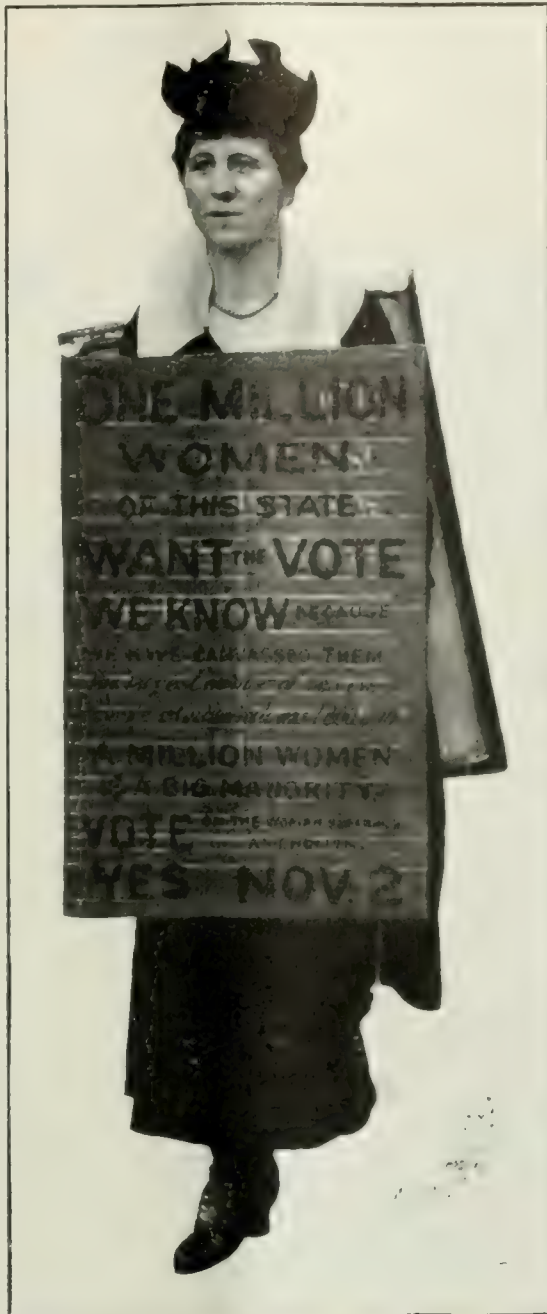 ONE MILLION
WOMEN
OF THIS STATE
WANT THE VOTE
WE KNOW BECAUSE
WE HAVE CANVASSED THEM
A MILLION WOMEN
IS A BIG MAJORITY
VOTE ON THE WOMAN SUFFRAGE
AMENDMENT
YES NOV. 2